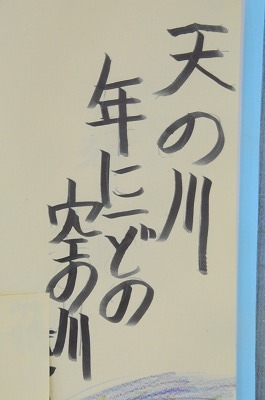 天の川
年に一どの
空の川